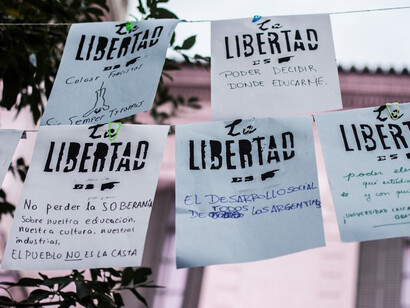 Tu
LIBERTAD
ES
Colgar Fascistas
Sic Semper Tyrannis
Tu
LIBERTAD
ES
PODER DECIDIR
DONDE EDUCARME.
Tu
LIBERTAD
ES
No perder la SOBERANÍA
Sobre nuestra educación,
nuestra cultura, nuestras
industrias.
EL PUEBLO NO ES LA CASTA
Tu
LIBERTAD
ES
EL DESARROLLO SOCIAL
DE TODOS LOS ARGENTINOS
Tu
LIBERTAD
ES
poder
que
y con
UNIVERSIDAD